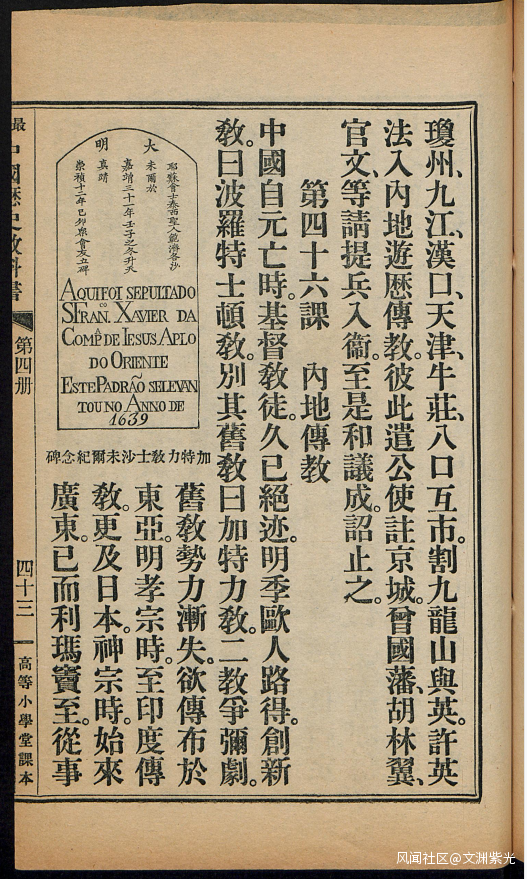 瓊州、九江、漢口、天津、牛莊、八口互市。割九龍山與英。許英
法入內地遊歷傳敎。彼此遣公使註京城。曾國藩、胡林翼、
官文、等請提兵入衞。至是和議成。詔止之。
第四十六課 內地傳敎
中國自元亡時。基督敎徒。久已絕迹。明季歐人路得。創新
敎。曰波羅特士頓敎。別其舊敎曰加特力敎。二敎爭彌劇。
舊敎勢力漸失。欲傳布於
東亞。明孝宗時。至印度傳
敎。更及日本。神宗時。始來
廣東。已而利瑪竇至。從事
大明
耶穌會士泰西聖人範濟各沙
未爾於
嘉靖三十一年壬子之冬升天
真蹟
崇禎十二年己卯衆會友立碑
AQUI FOI SEPULTADO
S FRAN. XAVIER DA
COMPª DE IESUS APLO
DO ORIENTE
ESTE PADRÃO SE LEVAN
TOU NO ANNO DE
1639
加特力敎士沙未爾紀念碑
最
中國歷史敎科書
第四册
四十三
高等小學堂課本
风闻社区@文洲紫光